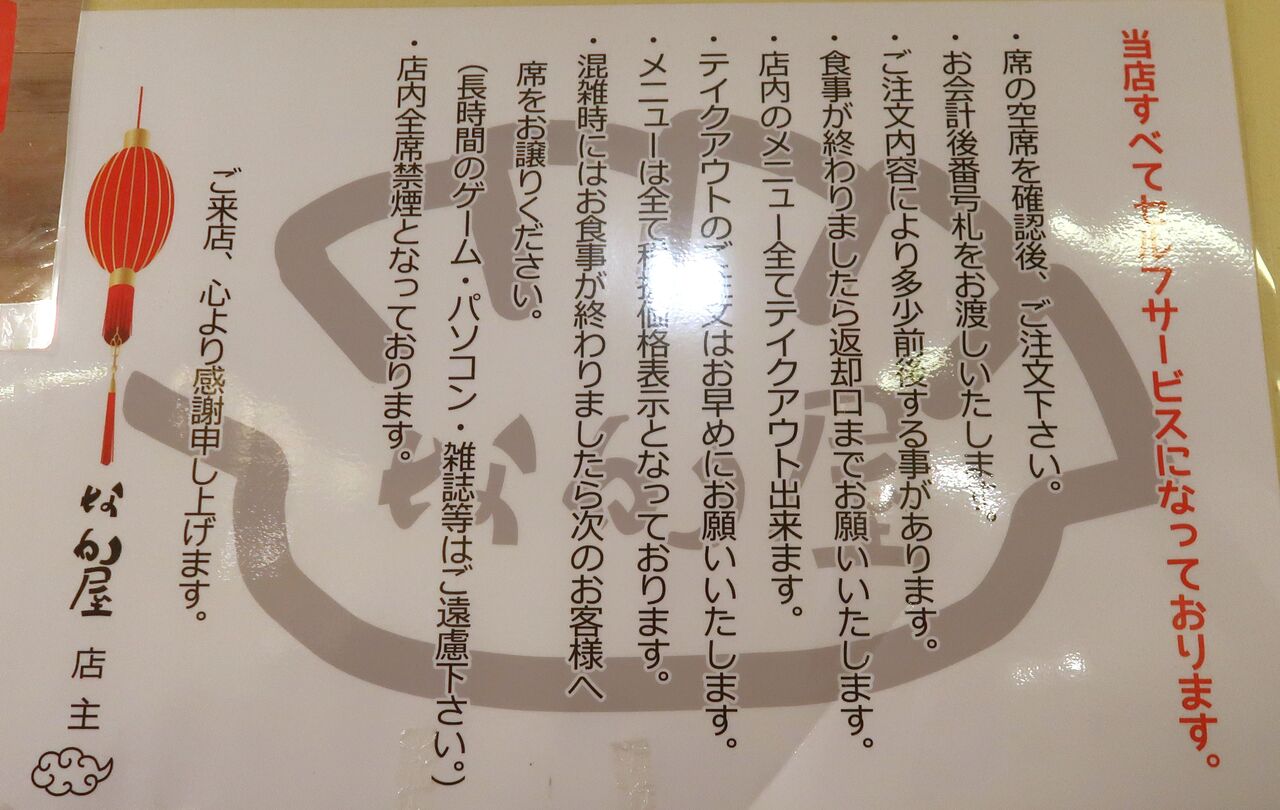 当店すべてセルフサービスになっております。
・席の空席を確認後、ご注文下さい。
・お会計後番号札をお渡しいたします。
・ご注文内容により多少前後する事があります。
・食事が終わりましたら返却口までお願いいたします。
・店内のメニュー全てテイクアウト出来ます。
・テイクアウトのご注文はお早めにお願いいたします。
・メニューは全て税抜価格表示となっております。
・混雑時にはお食事が終わりましたら次のお客様へ
席をお譲りください。
(長時間のゲーム・パソコン・雑誌等はご遠慮下さい。)
・店内全席禁煙となっております。
ご来店、心より感謝申し上げます。
なか屋 店主
なか屋